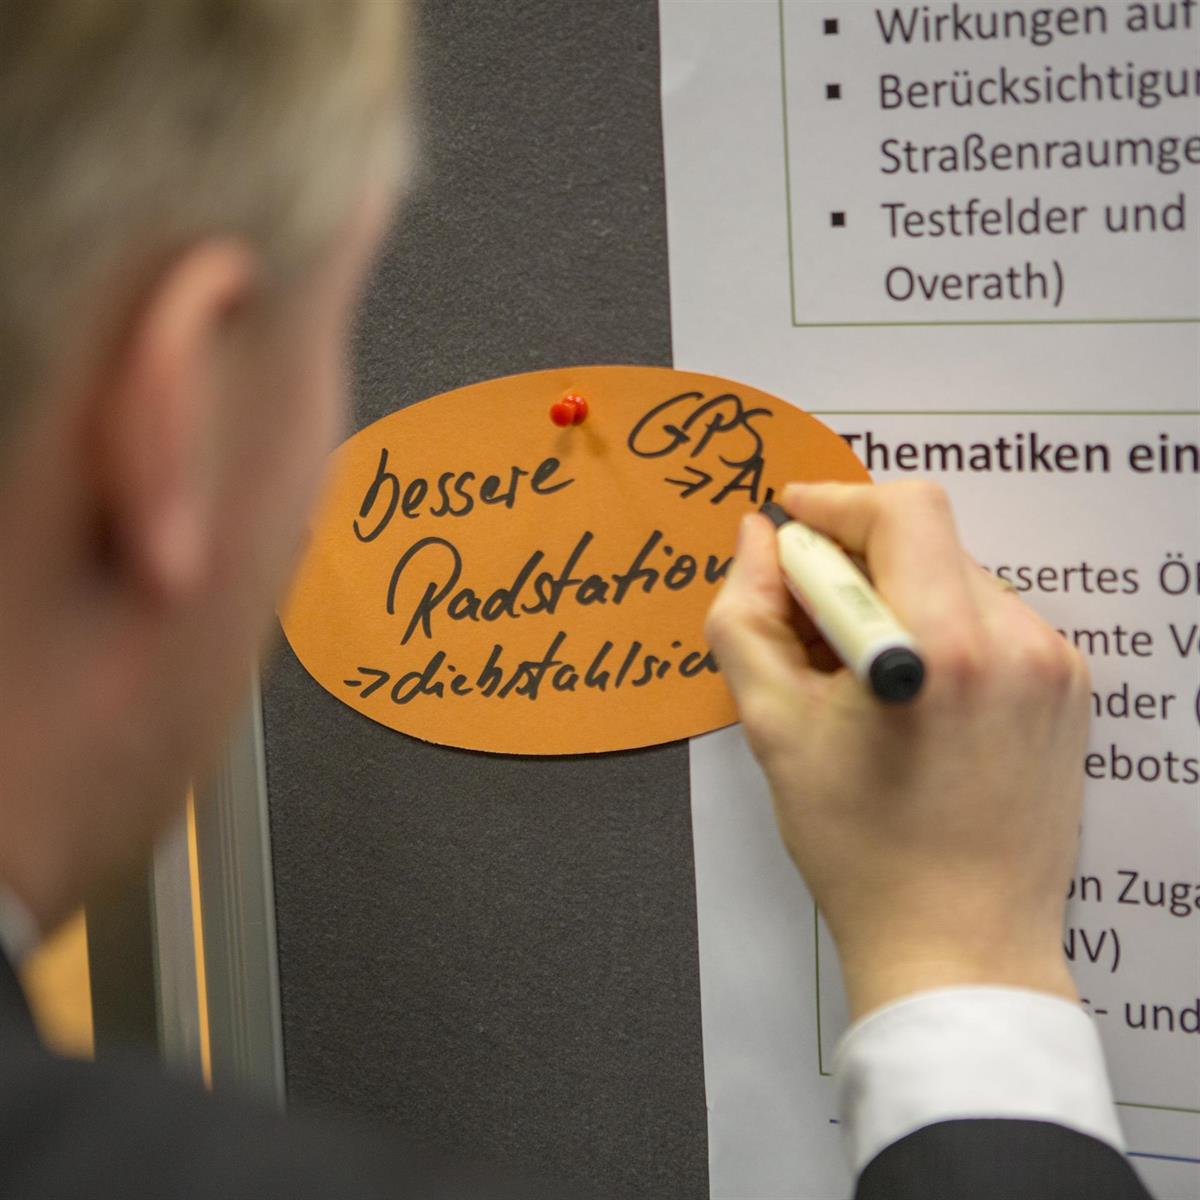 Wirkungen auf
Berücksichtigun
Straßenraumge
Testfelder und
Overath)
GPS
bessere
Radstation
-> diebstahlsic
Thematiken ein
ssertes
mmte
nder (
ebots
n Zuga
NV)
- und